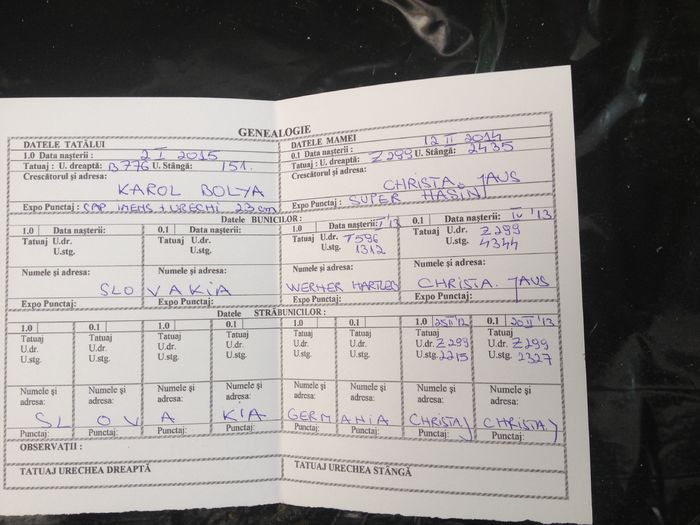 GENEALOGIE
DATELE TATĂLUI
1.0 Data nașterii : 2 I 2015
Tatuaj : U. dreaptă: B776 U. Stângă: 151.
Crescătorul și adresa:
KAROL BOLYA
Expo Punctaj : CAP IMENS + URECHI 23 cm
DATELE MAMEI
0.1 Data nașterii : 12 II 2014
Tatuaj : U. dreaptă: Z 299 U. Stângă: 2435
Crescătorul și adresa:
CHRISTA. JAUS
Expo Punctaj : SUPER HASIN
Datele BUNICILOR :
1.0 Data nașterii: 0.1 Data nașterii: 1.0 Data nașterii: I '13 0.1 Data nașterii: IV '13
Tatuaj U.dr. Tatuaj U.dr. Tatuaj U.dr. T596 Tatuaj U.dr. Z 299
U.stg. U.stg. U.stg. 1312 U.stg. 4344
Numele și adresa: Numele și adresa: Numele și adresa: Numele și adresa:
SLOVAKIA WERNER CHRISTA. JAUS
Expo Punctaj: Expo Punctaj: Expo Punctaj: Expo Punctaj:
Datele STRĂBUNICILOR :
1.0 0.1 1.0 0.1 1.0 0.1 1.0 25 II '12 0.1 20 II '13
Tatuaj Tatuaj Tatuaj Tatuaj Tatuaj Tatuaj Tatuaj Tatuaj
U.dr. U.dr. U.dr. U.dr. U.dr. U.dr. U.dr. Z 299 U.dr. Z 299
U.stg. U.stg. U.stg. U.stg. U.stg. U.stg. U.stg. 2215 U.stg. 2327
Numele și Numele și Numele și Numele și Numele și Numele și Numele și Numele și
adresa: adresa: adresa: adresa: adresa: adresa: adresa: adresa:
SLOVAKIA GERMANIA CHRISTA J CHRISTA J
Punctaj: Punctaj: Punctaj: Punctaj: Punctaj: Punctaj: Punctaj: Punctaj:
OBSERVAȚII :
TATUAJ URECHEA DREAPTĂ TATUAJ URECHEA STÂNGĂ